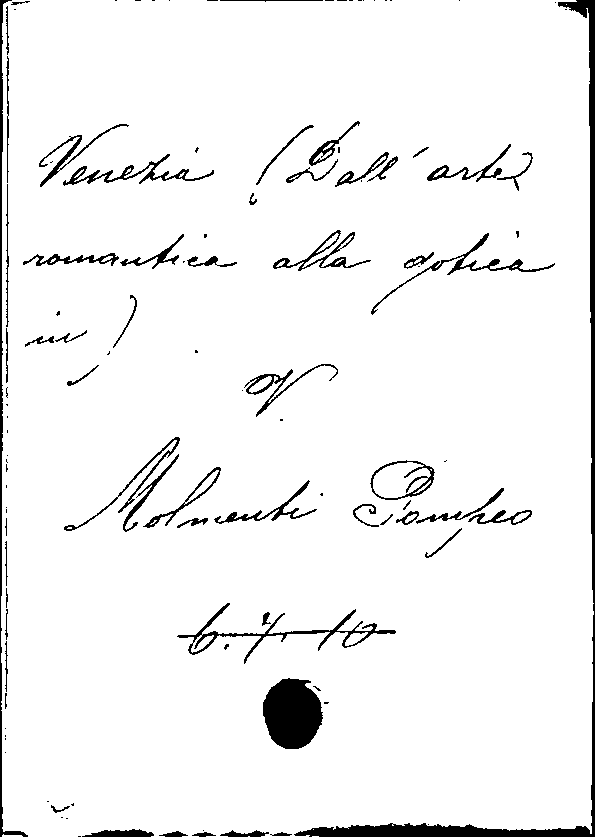 Venezia (Dall'arte
romantica alla gotica
in)
V.
Molmenti Pompeo
6.7.10